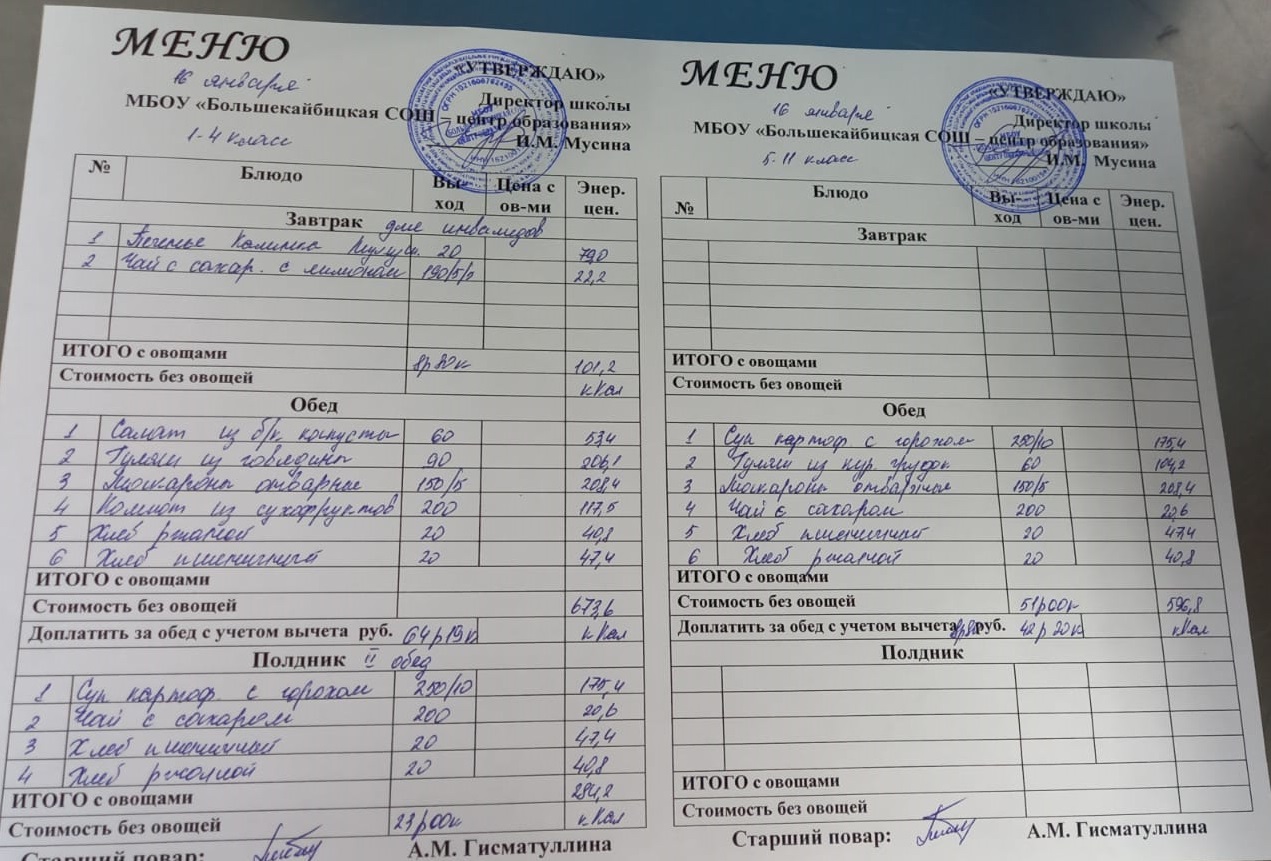 МЕНЮ
16 января
«УТВЕРЖДАЮ»
Директор школы
МБОУ «Большекайбицкая СОШ – центр образования»
1-4 класс
И.М. Мусина
№ Блюдо Вы-ход Цена с ов-ми Энер. цен.
Завтрак для инвалидов
1 Печенье Калинка 20 79,0
2 Чай с сахар. с лимоном 190/5/ 22,2
ИТОГО с овощами 8р80к 101,2
Стоимость без овощей кКал
Обед
1 Салат из б/к капусты 60 53,4
2 Гуляш из говядины 90 206,1
3 Макароны отварные 150/5 208,4
4 Компот из сухофруктов 200 117,5
5 Хлеб ржаной 20 40,8
6 Хлеб пшеничный 20 47,4
ИТОГО с овощами
Стоимость без овощей 673,6
Доплатить за обед с учетом вычета руб. 64р19к кКал
Полдник II обед
1 Суп картоф с горохом 250/10 175,4
2 Чай с сахаром 200 20,6
3 Хлеб пшеничный 20 47,4
4 Хлеб ржаной 20 40,8
ИТОГО с овощами 284,2
Стоимость без овощей 23р00к кКал
Старший повар: А.М. Гисматуллина
МЕНЮ
16 января
«УТВЕРЖДАЮ»
Директор школы
МБОУ «Большекайбицкая СОШ – центр образования»
5-11 класс
И.М. Мусина
№ Блюдо Вы-ход Цена с ов-ми Энер. цен.
Завтрак
ИТОГО с овощами
Стоимость без овощей
Обед
1 Суп картоф с горохом 250/10 175,4
2 Гуляш из кур. грудок 60 104,2
3 Макароны отварные 150/5 208,4
4 Чай с сахаром 200 20,6
5 Хлеб пшеничный 20 47,4
6 Хлеб ржаной 20 40,8
ИТОГО с овощами
Стоимость без овощей 51р00к 596,8
Доплатить за обед с учетом вычета 8р80 руб. 42р20к кКал
Полдник
ИТОГО с овощами
Стоимость без овощей
Старший повар: А.М. Гисматуллина